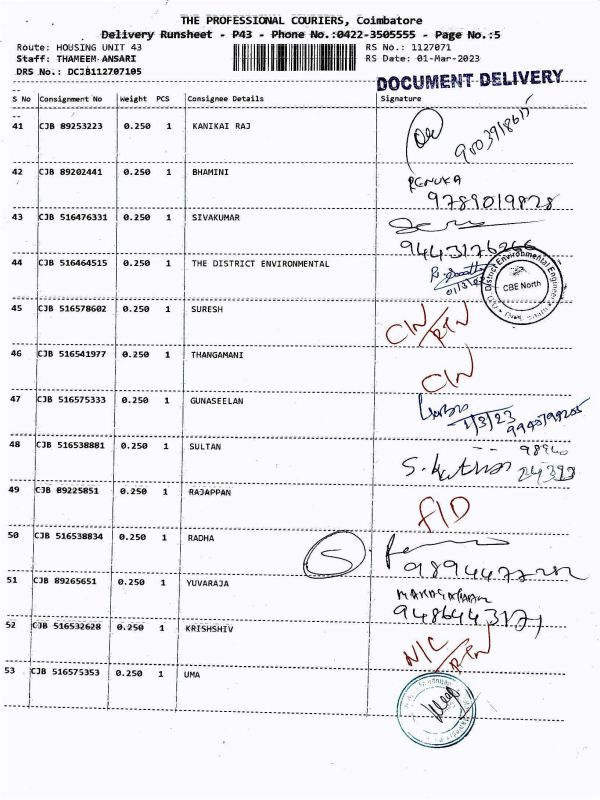 THE PROFESSIONAL COURIERS, Coimbatore
Delivery Runsheet - P43 - Phone No.:0422-3505555 - Page No.:5
Route: HOUSING UNIT 43 RS No.: 1127071
Staff: THAMEEM ANSARI RS Date: 01-Mar-2023
DRS No.: DCJB112707105
DOCUMENT DELIVERY
S No Consignment No Weight PCS Consignee Details Signature
41 CJB 89253223 0.250 1 KANIKAI RAJ
42 CJB 89202441 0.250 1 BHAMINI RENUKA
9789019828
43 CJB 516476331 0.250 1 SIVAKUMAR
9443126266
44 CJB 516464515 0.250 1 THE DISTRICT ENVIRONMENTAL
District Environmental Engineer
CBE North
45 CJB 516578602 0.250 1 SURESH C/N/RTN
46 CJB 516541977 0.250 1 THANGAMANI C/N
47 CJB 516575333 0.250 1 GUNASEELAN
1/3/23 9940799205
48 CJB 516538881 0.250 1 SULTAN 98940
24393
49 CJB 89225851 0.250 1 RAJAPPAN F/D
50 CJB 516538834 0.250 1 RADHA S.
51 CJB 89265651 0.250 1 YUVARAJA
52 CJB 516532628 0.250 1 KRISHSHIV N/C/RTN
53 CJB 516575353 0.250 1 UMA